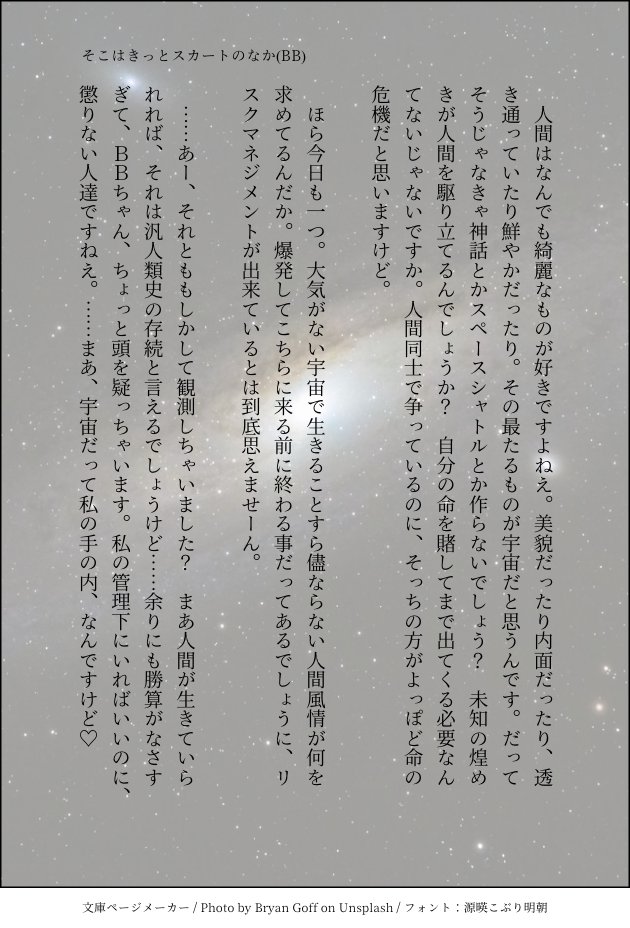 そこはきっとスカートのなか(BB)
人間はなんでも綺麗なものが好きですよねえ。美貌だったり内面だったり、透
き通っていたり鮮やかだったり。その最たるものが宇宙だと思うんです。だって
そうじゃなきゃ神話とかスペースシャトルとか作らないでしょう？　未知の煌め
きが人間を駆り立てるんでしょうか？　自分の命を賭してまで出てくる必要なん
てないじゃないですか。人間同士で争っているのに、そっちの方がよっぽど命の
危機だと思いますけど。
ほら今日も一つ。大気がない宇宙で生きることすら儘ならない人間風情が何を
求めてるんだか。爆発してこちらに来る前に終わる事だってあるでしょうに、リ
スクマネジメントが出来ているとは到底思えませーん。
……あー、それとももしかして観測しちゃいました？　まあ人間が生きていら
れれば、それは汎人類史の存続と言えるでしょうけど……余りにも勝算がなさす
ぎて、ＢＢちゃん、ちょっと頭を疑っちゃいます。私の管理下にいればいいのに、
懲りない人達ですねえ。……まあ、宇宙だって私の手の内、なんですけど♡
文庫ページメーカー / Photo by Bryan Goff on Unsplash / フォント：源暎こぶり明朝